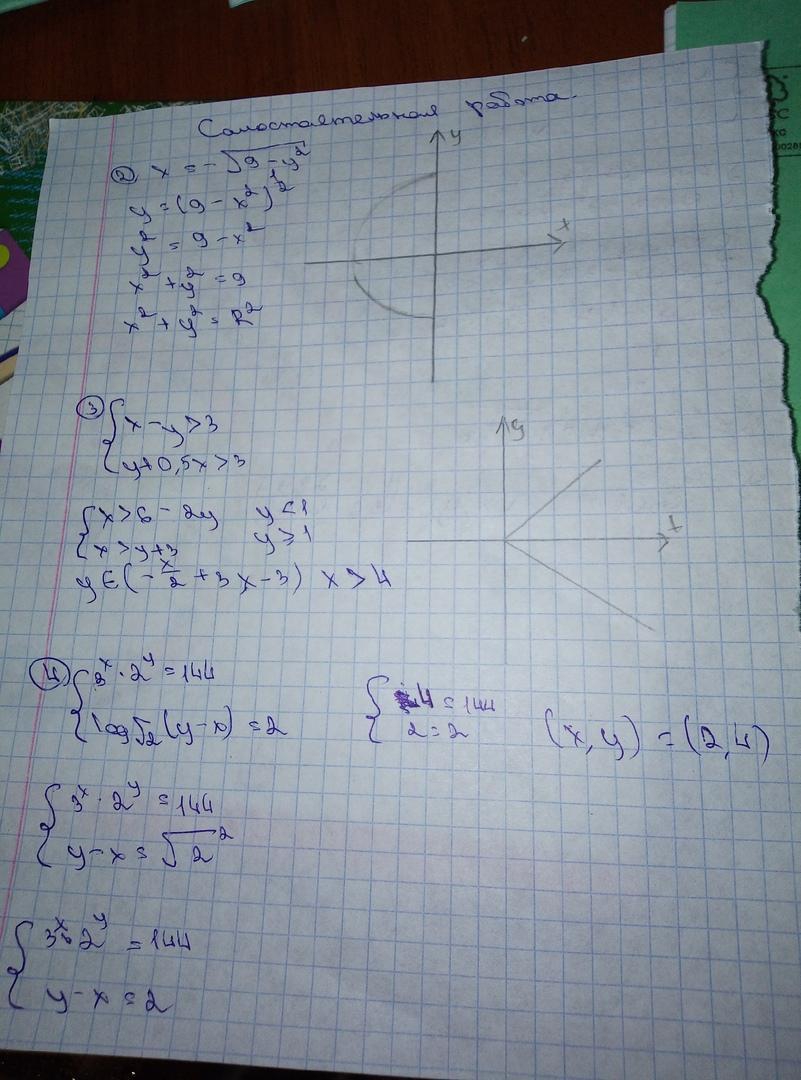 Самостоятельная работа.
② x = -√(9-y²)
y
y = (9 - x²)^½
y² = 9 - x²
x
x² + y² = 9
x² + y² = R²
③ { x - y > 3
y + 0,5x > 3
y
{ x > 6 - 2y y < 1
x > y + 3 y ≥ 1
y ∈ (-x/2 + 3 x - 3) x > 4
④ { 3ˣ · 2ʸ = 144
log√2 (y-x) = 2
{ 144 = 144
2 = 2
(x, y) = (2, 4)
{ 3ˣ · 2ʸ = 144
y - x = √2²
{ 3ˣ · 2ʸ = 144
y - x = 2